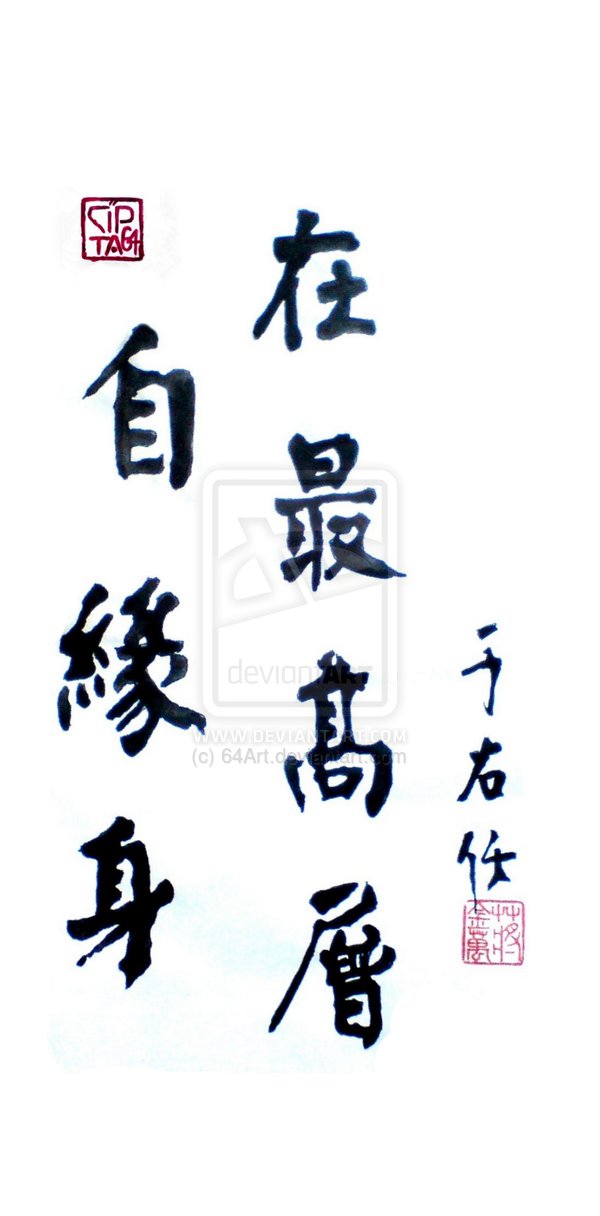 CIP
TA64
自緣身
在最高層
于右任
蔣金萬
deviantART
WWW.DEVIANTART.COM
(c) 64Art.deviantart.com